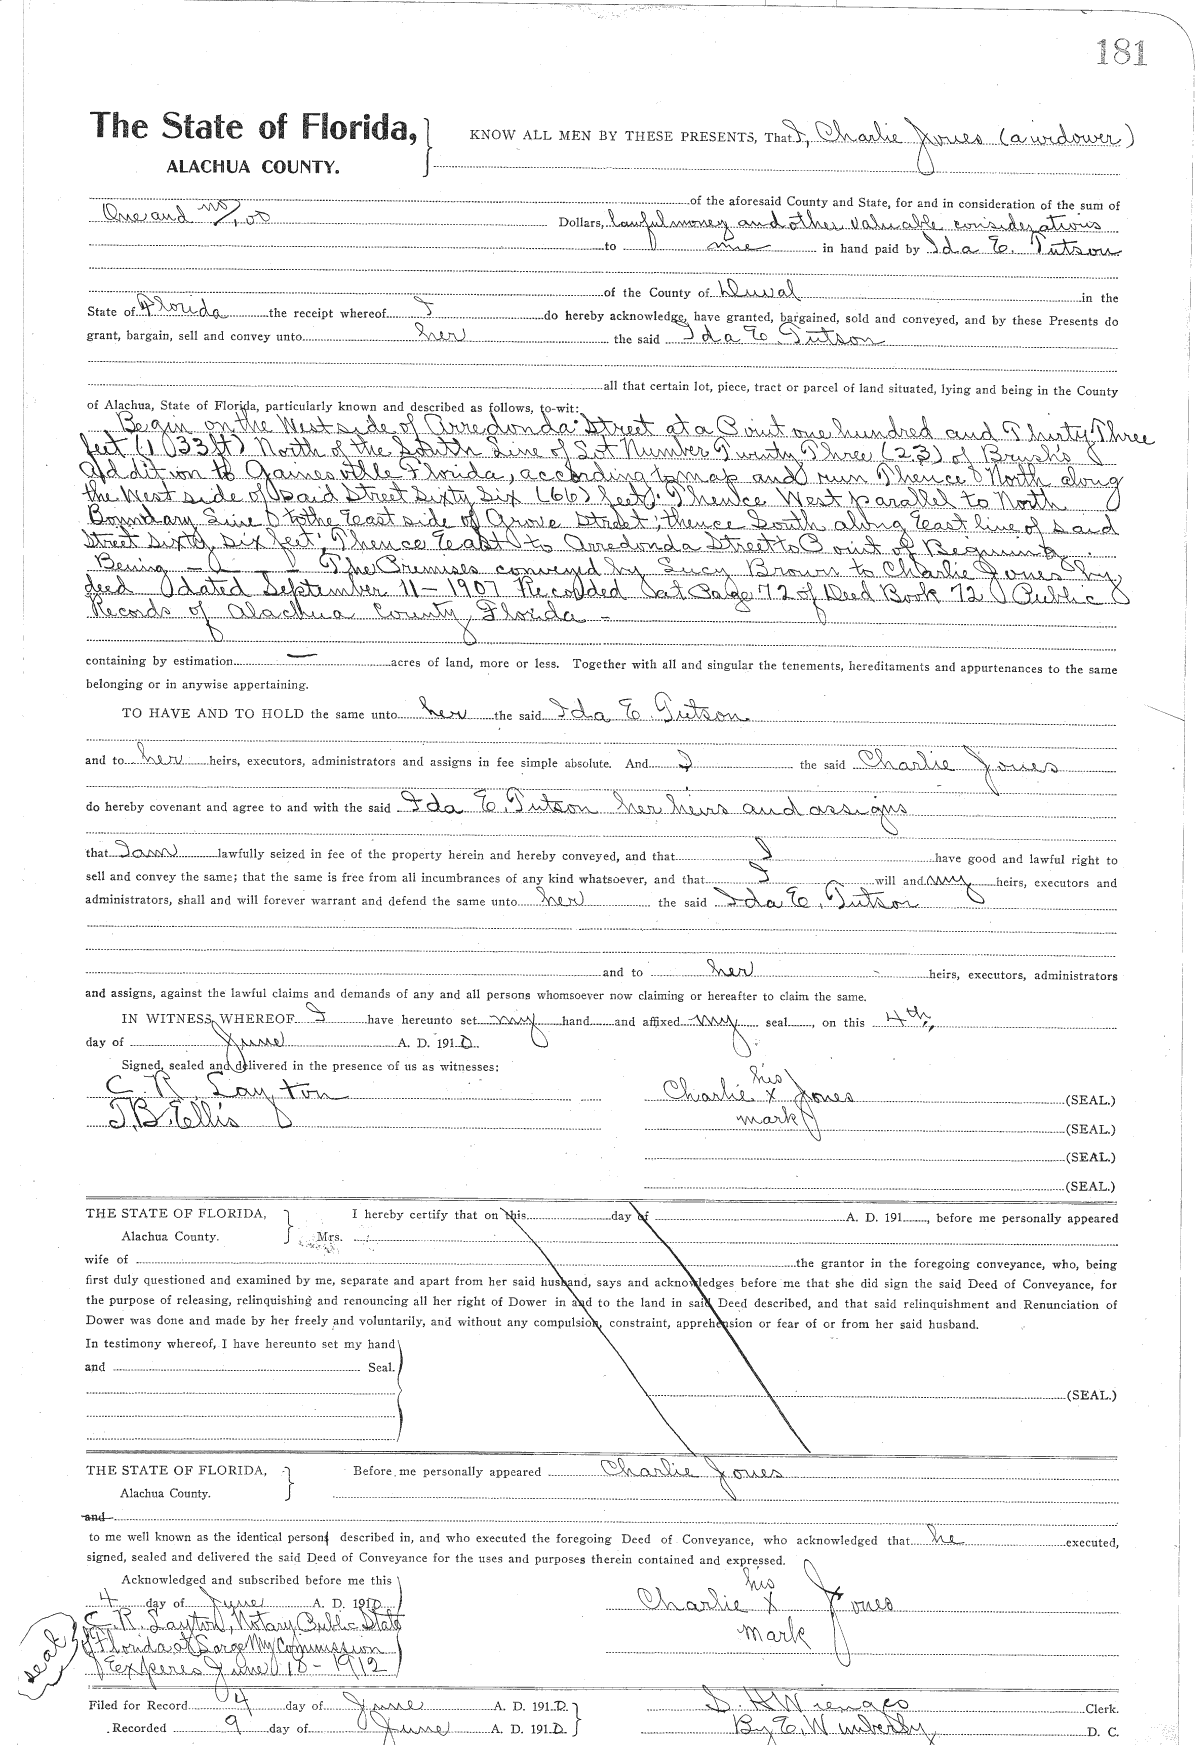 181
The State of Florida,
ALACHUA COUNTY.
KNOW ALL MEN BY THESE PRESENTS, That I, Charlie Jones (a widower)
of the aforesaid County and State, for and in consideration of the sum of
One and no/100 Dollars, lawful money and other valuable considerations
to me in hand paid by Ida E. Tutson
of the County of Duval in the
State of Florida the receipt whereof I do hereby acknowledge, have granted, bargained, sold and conveyed, and by these Presents do
grant, bargain, sell and convey unto her the said Ida E Tutson
all that certain lot, piece, tract or parcel of land situated, lying and being in the County
of Alachua, State of Florida, particularly known and described as follows, to-wit:
Begin on the West side of Arredonda Street at a Point one hundred and Thirty Three
feet (133 ft) North of the South Line of Lot Number Twenty Three (23) of Brush's
Addition to Gainesville Florida, according to map and run Thence North along
the West side of said Street Sixty Six (66) feet; Thence West parallel to North
Boundary Line to the East side of Grove Street; thence South along East line of said
Street Sixty six feet; Thence East to Arredonda Street to Point of Beginning.
Being - The Premises conveyed by Lucy Brown to Charlie Jones by
deed dated September 11 - 1907 Recorded at Page 72 of Deed Book 72 Public
Records of Alachua County Florida -
containing by estimation — acres of land, more or less. Together with all and singular the tenements, hereditaments and appurtenances to the same
belonging or in anywise appertaining.
TO HAVE AND TO HOLD the same unto her the said Ida E. Tutson
and to her heirs, executors, administrators and assigns in fee simple absolute. And I the said Charlie Jones
do hereby covenant and agree to and with the said Ida E. Tutson her heirs and assigns
that I am lawfully seized in fee of the property herein and hereby conveyed, and that I have good and lawful right to
sell and convey the same; that the same is free from all incumbrances of any kind whatsoever, and that I will and my heirs, executors and
administrators, shall and will forever warrant and defend the same unto her the said Ida E. Tutson
and to her heirs, executors, administrators
and assigns, against the lawful claims and demands of any and all persons whomsoever now claiming or hereafter to claim the same.
IN WITNESS WHEREOF I have hereunto set my hand and affixed my seal, on this 4th,
day of June A. D. 1910.
Signed, sealed and delivered in the presence of us as witnesses:
C. R. Layton
T.B. Ellis
Charlie his x mark Jones (SEAL.)
(SEAL.)
(SEAL.)
(SEAL.)
THE STATE OF FLORIDA, I hereby certify that on this day of A. D. 191, before me personally appeared
Alachua County. Mrs.
wife of the grantor in the foregoing conveyance, who, being
first duly questioned and examined by me, separate and apart from her said husband, says and acknowledges before me that she did sign the said Deed of Conveyance, for
the purpose of releasing, relinquishing and renouncing all her right of Dower in and to the land in said Deed described, and that said relinquishment and Renunciation of
Dower was done and made by her freely and voluntarily, and without any compulsion, constraint, apprehension or fear of or from her said husband.
In testimony whereof, I have hereunto set my hand
and Seal.
(SEAL.)
THE STATE OF FLORIDA, Before me personally appeared Charlie Jones
Alachua County.
and
to me well known as the identical person described in, and who executed the foregoing Deed of Conveyance, who acknowledged that he executed,
signed, sealed and delivered the said Deed of Conveyance for the uses and purposes therein contained and expressed.
Acknowledged and subscribed before me this
4 day of June A. D. 1910.
Charlie his x mark Jones
C. R. Layton, Notary Public State
of Florida at Large My Commission
Experes June 18 - 1912
seal
Filed for Record 4 day of June A. D. 1910. Clerk.
Recorded 9 day of June A. D. 1910. By E. Wimberly D. C.